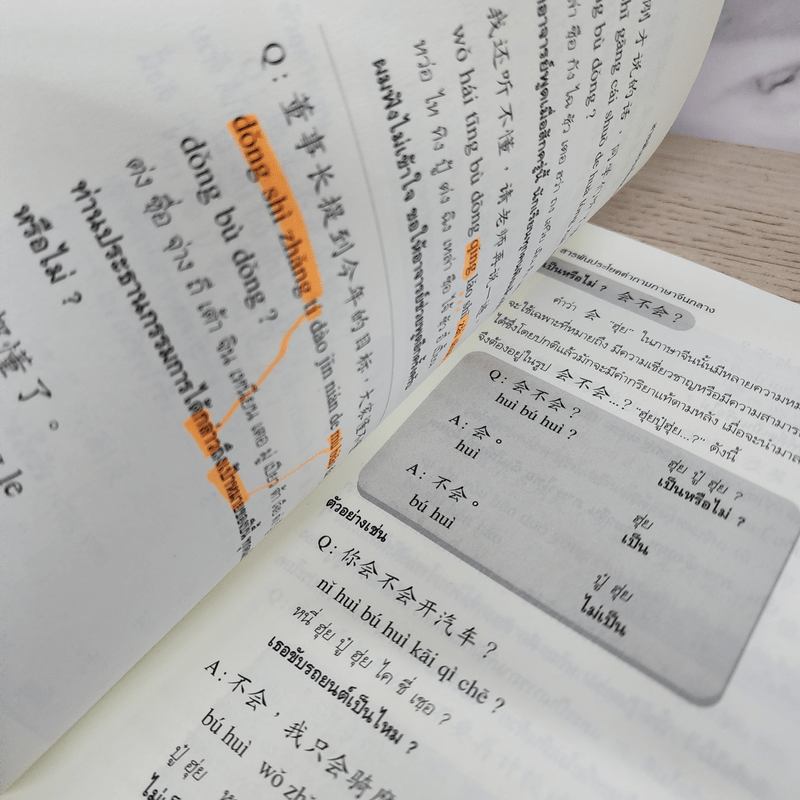 刚才说的话，同学
gāng cái shuō de huà
bù dǒng ?
我还听不懂，请老师再说一
wǒ hái tīng bù dǒng qǐng lǎo shī zài
ผมฟังไม่เข้าใจ ขอให้อาจารย์ช่วยพูดอีก
Q: 董事长提到今年的目标，大家
dǒng shì zhǎng tí dào jīn nián de mù biāo
dǒng bù dǒng ?
ท่านประธานกรรมการได้กล่าวถึงเป้าหมายของปีนี้
หรือไม่ ?
懂了。
le
สารพันประโยคคำถามภาษาจีนกลาง
เป็นหรือไม่ ? 会不会 ?
คำว่า 会 "ฮุ่ย" ในภาษาจีนนั้นมีหลายความหม
จะใช้เฉพาะที่หมายถึง มีความเชี่ยวชาญหรือมีความสามาร
ได้ซึ่งโดยปกติแล้วมักจะมีคำกริยาแท้ตามหลัง เมื่อจะนำมาส
จึงต้องอยู่ในรูป 会不会...? "ฮุ่ยปู๋ฮุ่ย...?" ดังนี้
Q: 会不会 ?
huì bú huì ?
ฮุ่ย ปู๋ ฮุ่ย ?
เป็นหรือไม่ ?
A: 会。
huì
ฮุ่ย
เป็น
A: 不会。
bú huì
ปู๋ ฮุ่ย
ไม่เป็น
ตัวอย่างเช่น
Q: 你会不会开汽车 ?
nǐ huì bú huì kāi qì chē ?
หนี่ ฮุ่ย ปู๋ ฮุ่ย ไค ชี่ เชอ ?
เธอขับรถยนต์เป็นไหม ?
A: 不会，我只会骑摩
bú huì wǒ zhǐ
ปู๋ ฮุ่ย